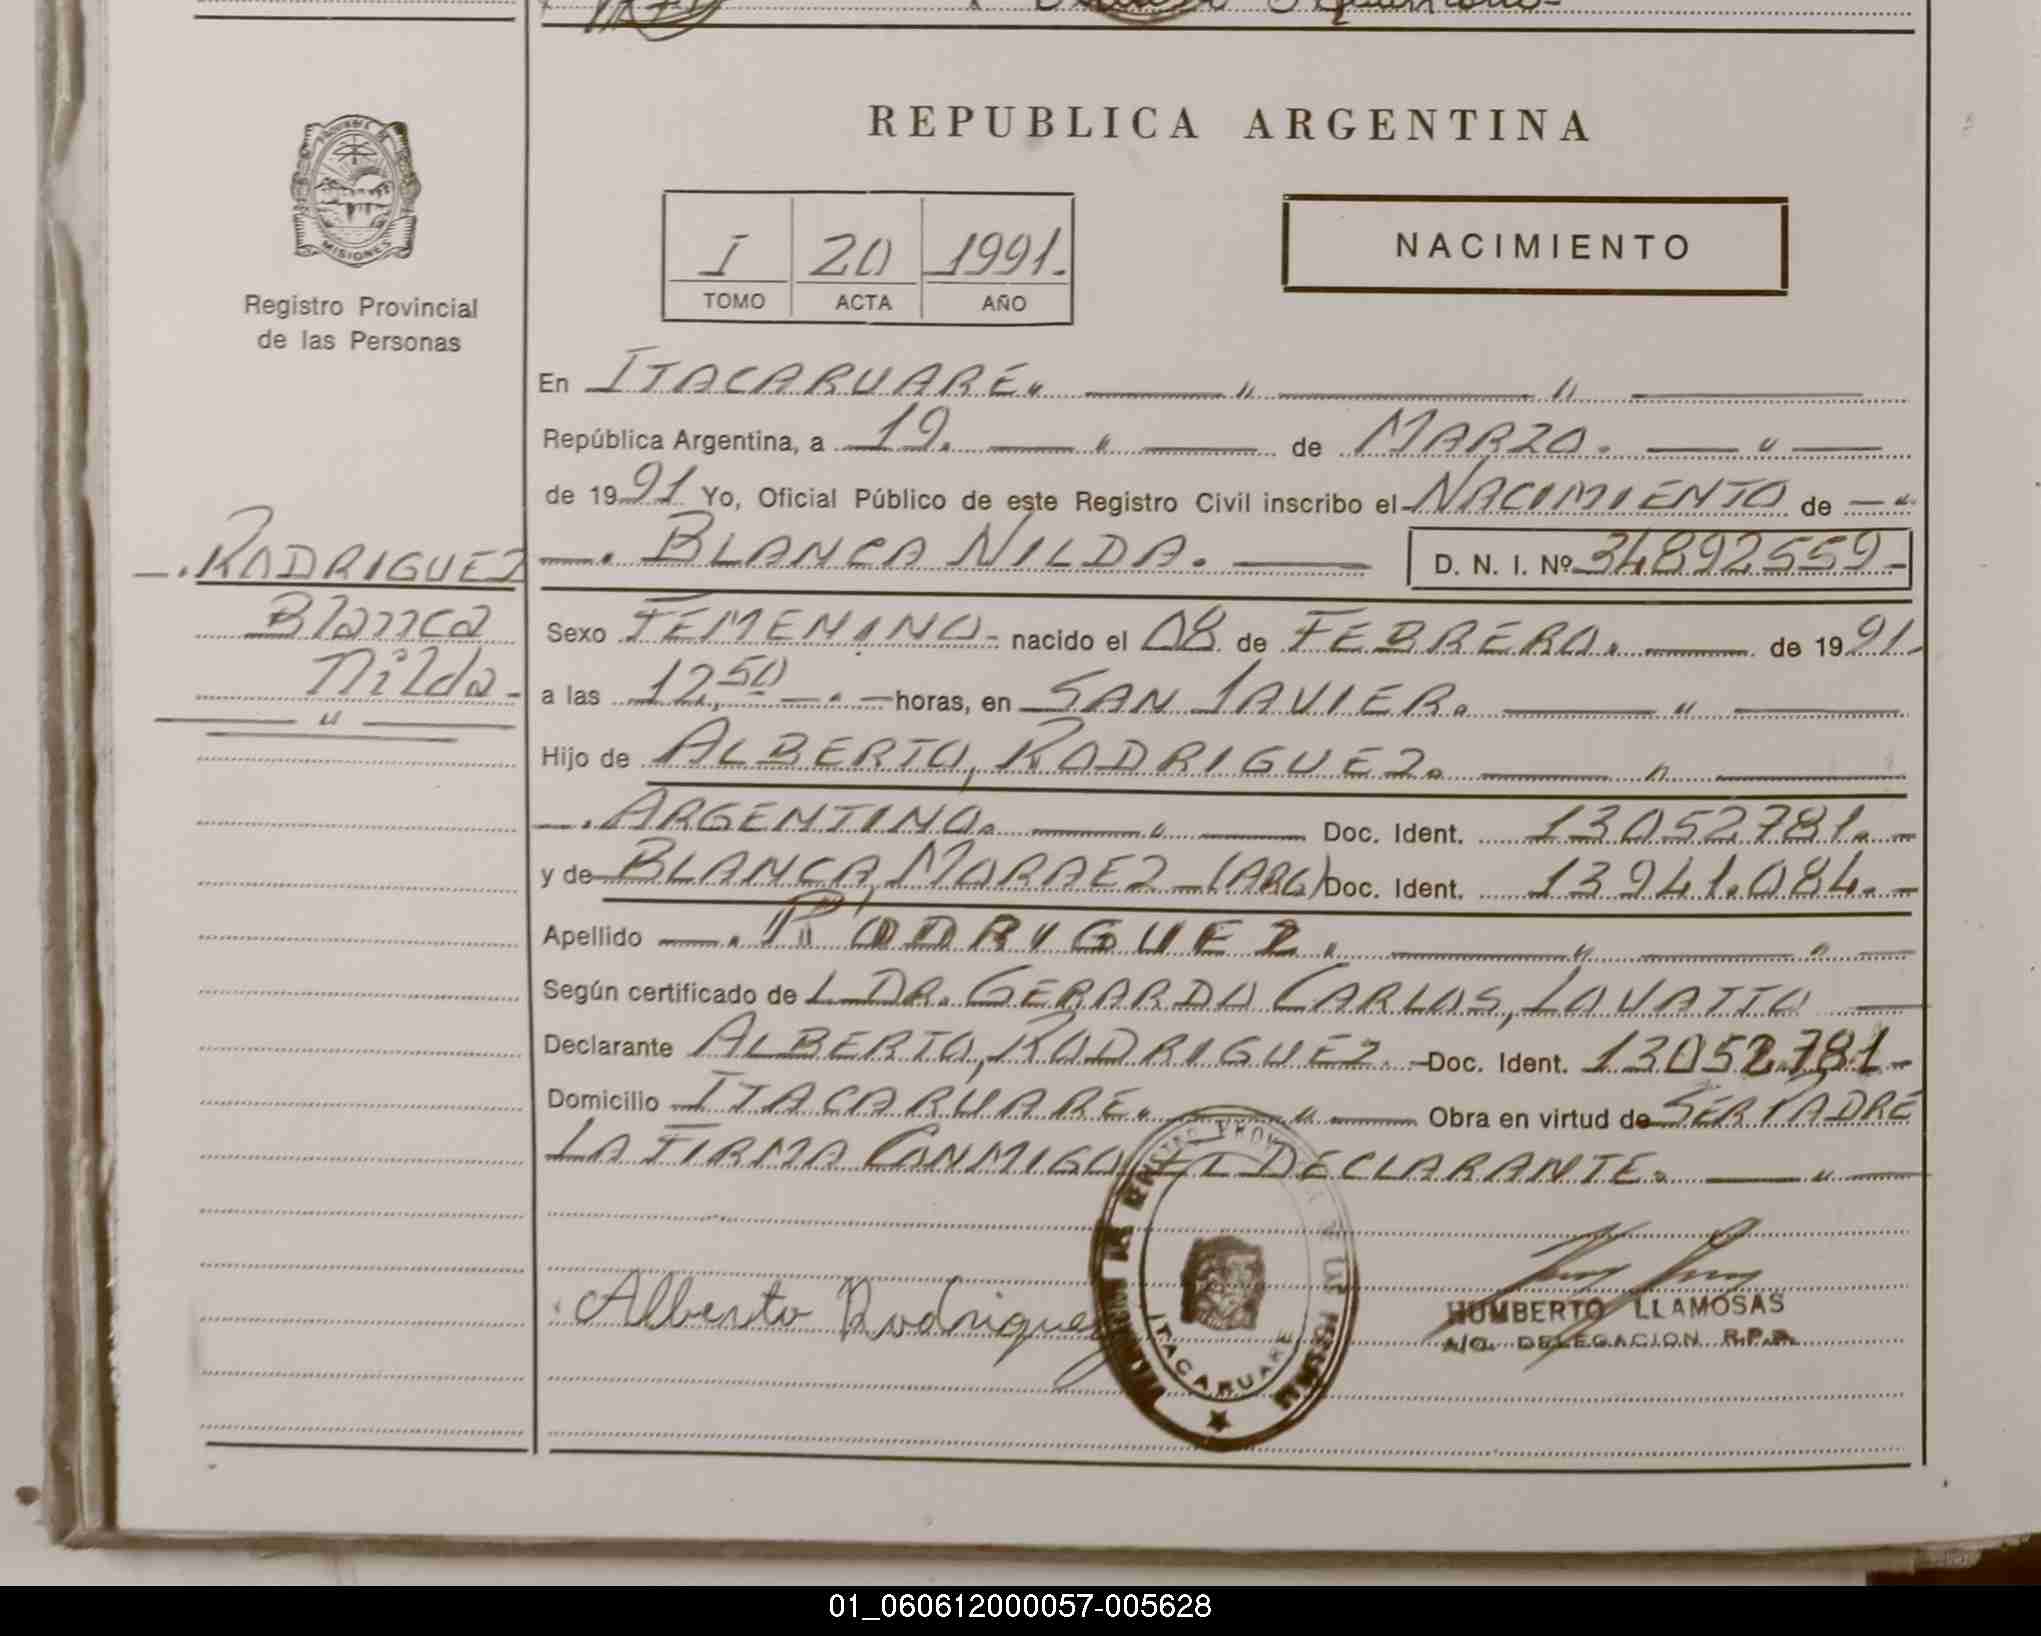 REPUBLICA ARGENTINA
PROVINCIA DE
MISIONES
Registro Provincial
de las Personas
I 20 1991.
TOMO ACTA AÑO
NACIMIENTO
En ITACARUARÉ„ — „ — „ —
República Argentina, a 19. — „ — de MARZO. — „ —
de 1991 Yo, Oficial Público de este Registro Civil inscribo el NACIMIENTO de — „
—. RODRIGUEZ
Blanca
Nilda-
— „ —
—. BLANCA NILDA. — D. N. I. Nº 34892559-
Sexo FEMENINO- nacido el 08 de FEBRERO. — de 1991.
a las 12,50 — . — horas, en SAN JAVIER. — „ —
Hijo de ALBERTO, RODRIGUEZ. — „ —
—. ARGENTINO. — „ — Doc. Ident. 13052781.-
y de BLANCA, MORAEZ - (ARG) Doc. Ident. 13941.084.-
Apellido —. RODRIGUEZ. — „ — „ —
Según certificado de L DR. GERARDO CARLOS, LOVATTO —
Declarante ALBERTO, RODRIGUEZ. - Doc. Ident. 13052781-
Domicilio ITACARUARE. — „ — Obra en virtud de SER PADRE
LA FIRMA CONMIGO EL DECLARANTE. — „ —
Alberto Rodriguez
ITACARUARE
HUMBERTO LLAMOSAS
A/C. DELEGACION R.P.P.
01_060612000057-005628